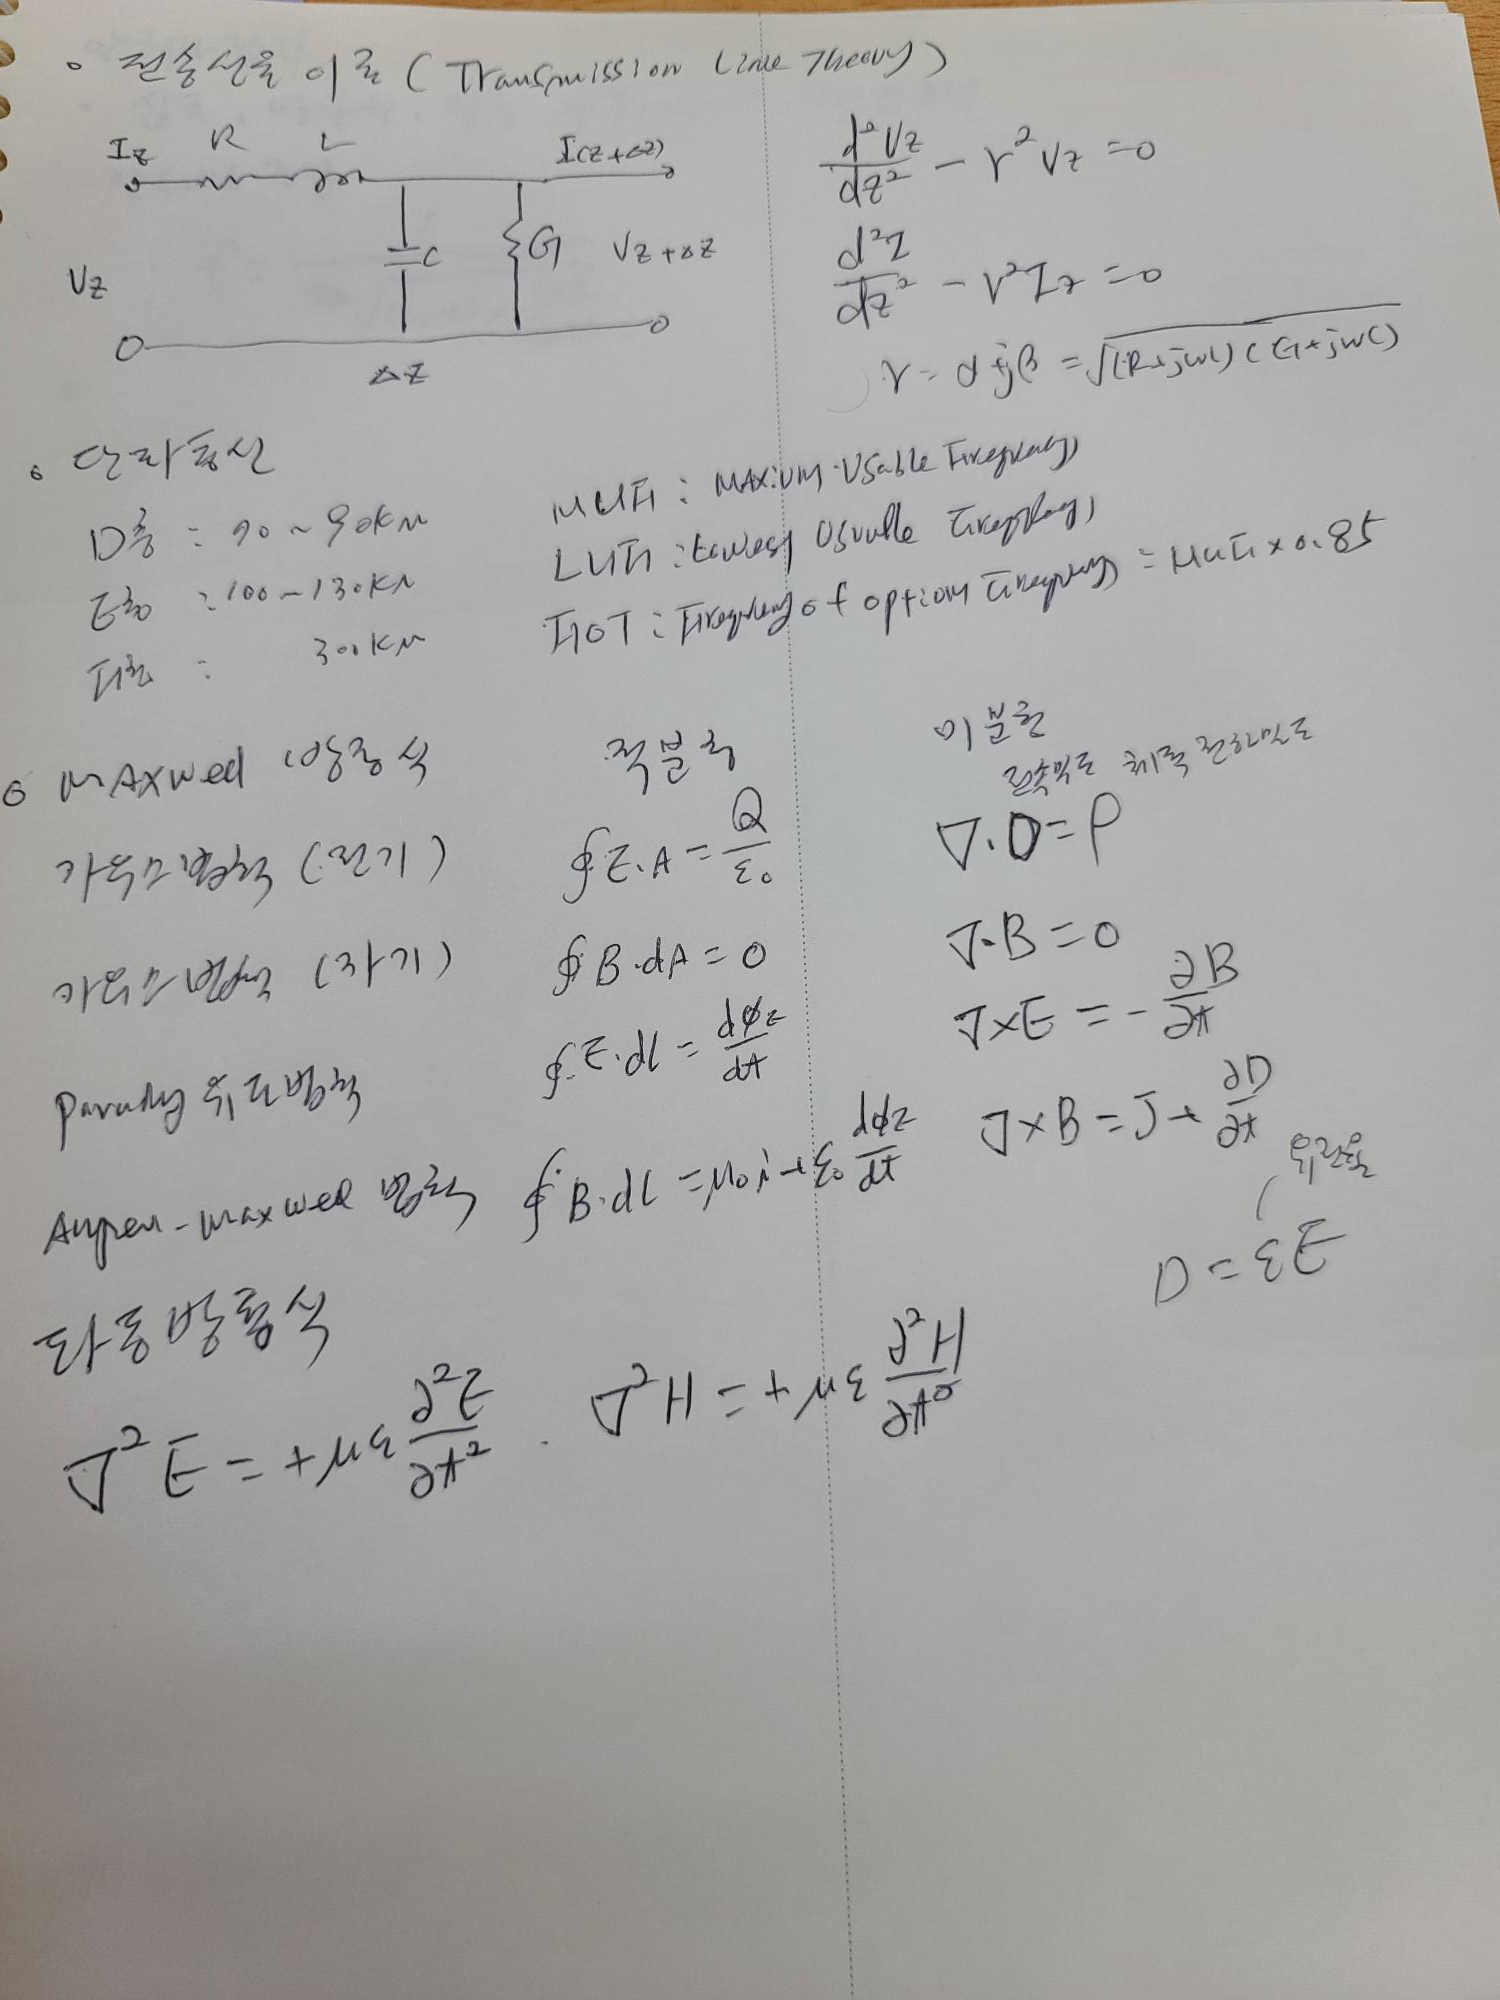 전송선로 이론 (Transmission Line Theory)
Iz R L I(z+Δz)
C G
Vz Vz+Δz
Δz
d²Vz/dz² - γ²Vz = 0
d²I/dz² - γ²Iz = 0
γ = α+jβ = √(R+jωL)(G+jωC)
단파통신
D층 : 70~90KM
E층 : 100~130KM
F층 : 300KM
MUF : MAXIUM Usable Frequency
LUF : Lowest Usualle Frequency
FOT : Frequency of optiom Frequency = MUF×0.85
MAxwell 방정식 적분형 미분형
전속밀도 체적전하밀도
가우스법칙 (전기) ∮E·A = Q/ε₀ ∇·D=ρ
가우스법칙 (자기) ∮B·dA = 0 ∇·B=0
유도법칙 ∮E·dl = dφE/dt ∇×E = -∂B/∂t
Amper-maxwell 법칙 ∮B·dl = μ₀i+ε₀ dφE/dt ∇×B = J+∂D/∂t
유전율
D = εE
파동방정식
∇²E = +με ∂²E/∂t² . ∇²H = +με ∂²H/∂t²